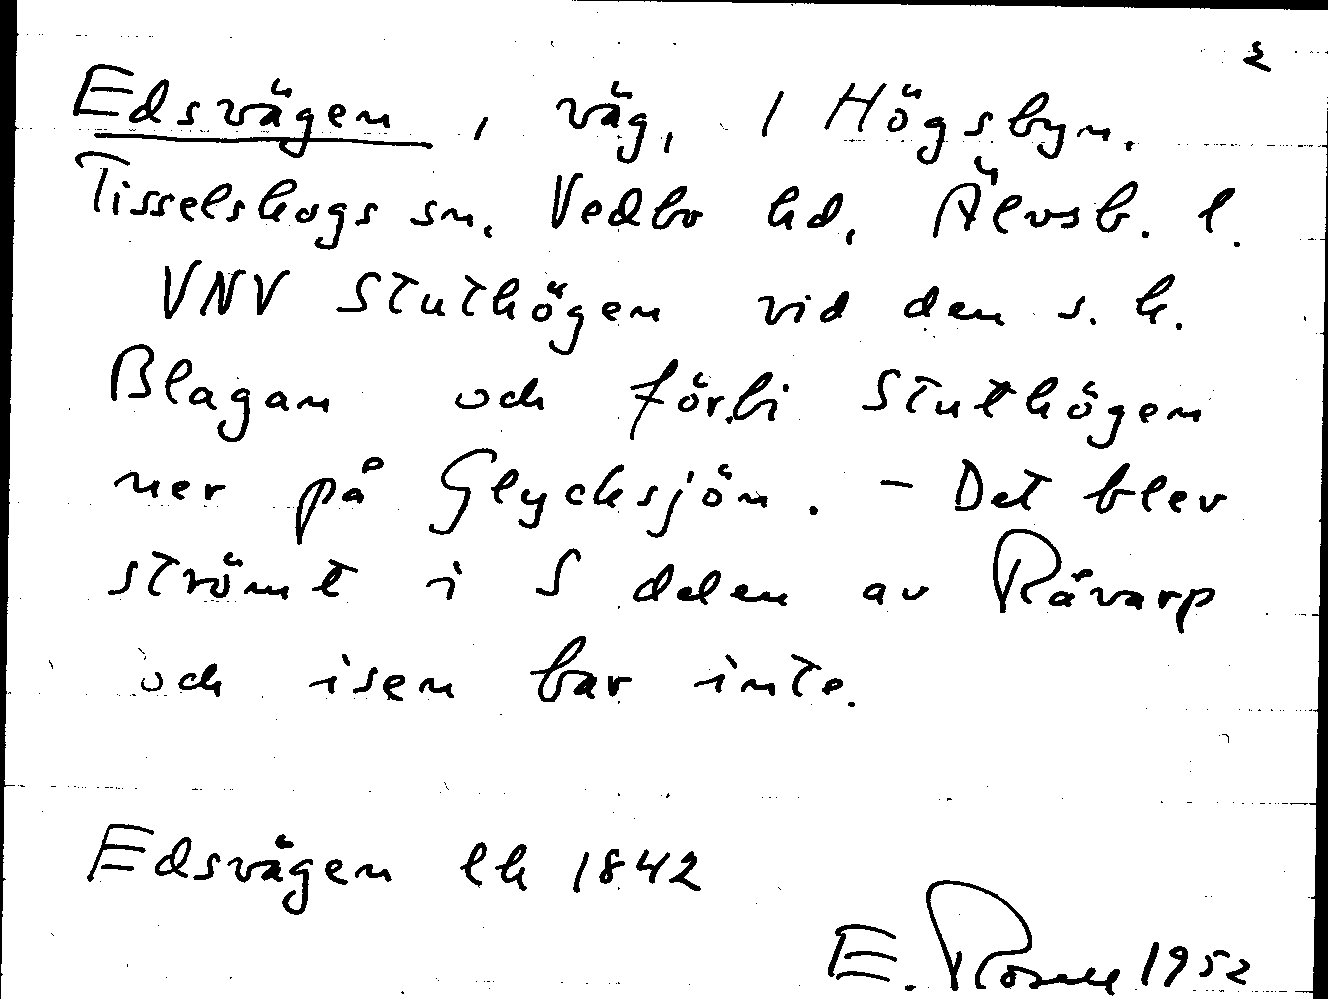 2
Edsvägen, väg, 1 Högsbyn.
Tisselskogs sn. Vedbo hd, Älvsb. l.
VNV Stuthögen vid den s. k.
Blagan och förbi Stuthögen
ner på Glycksjön. – Det blev
strömt i S delen av Råvarp
och isen bar inte.
Edsvägen lk 1842
E. Rosell 1952